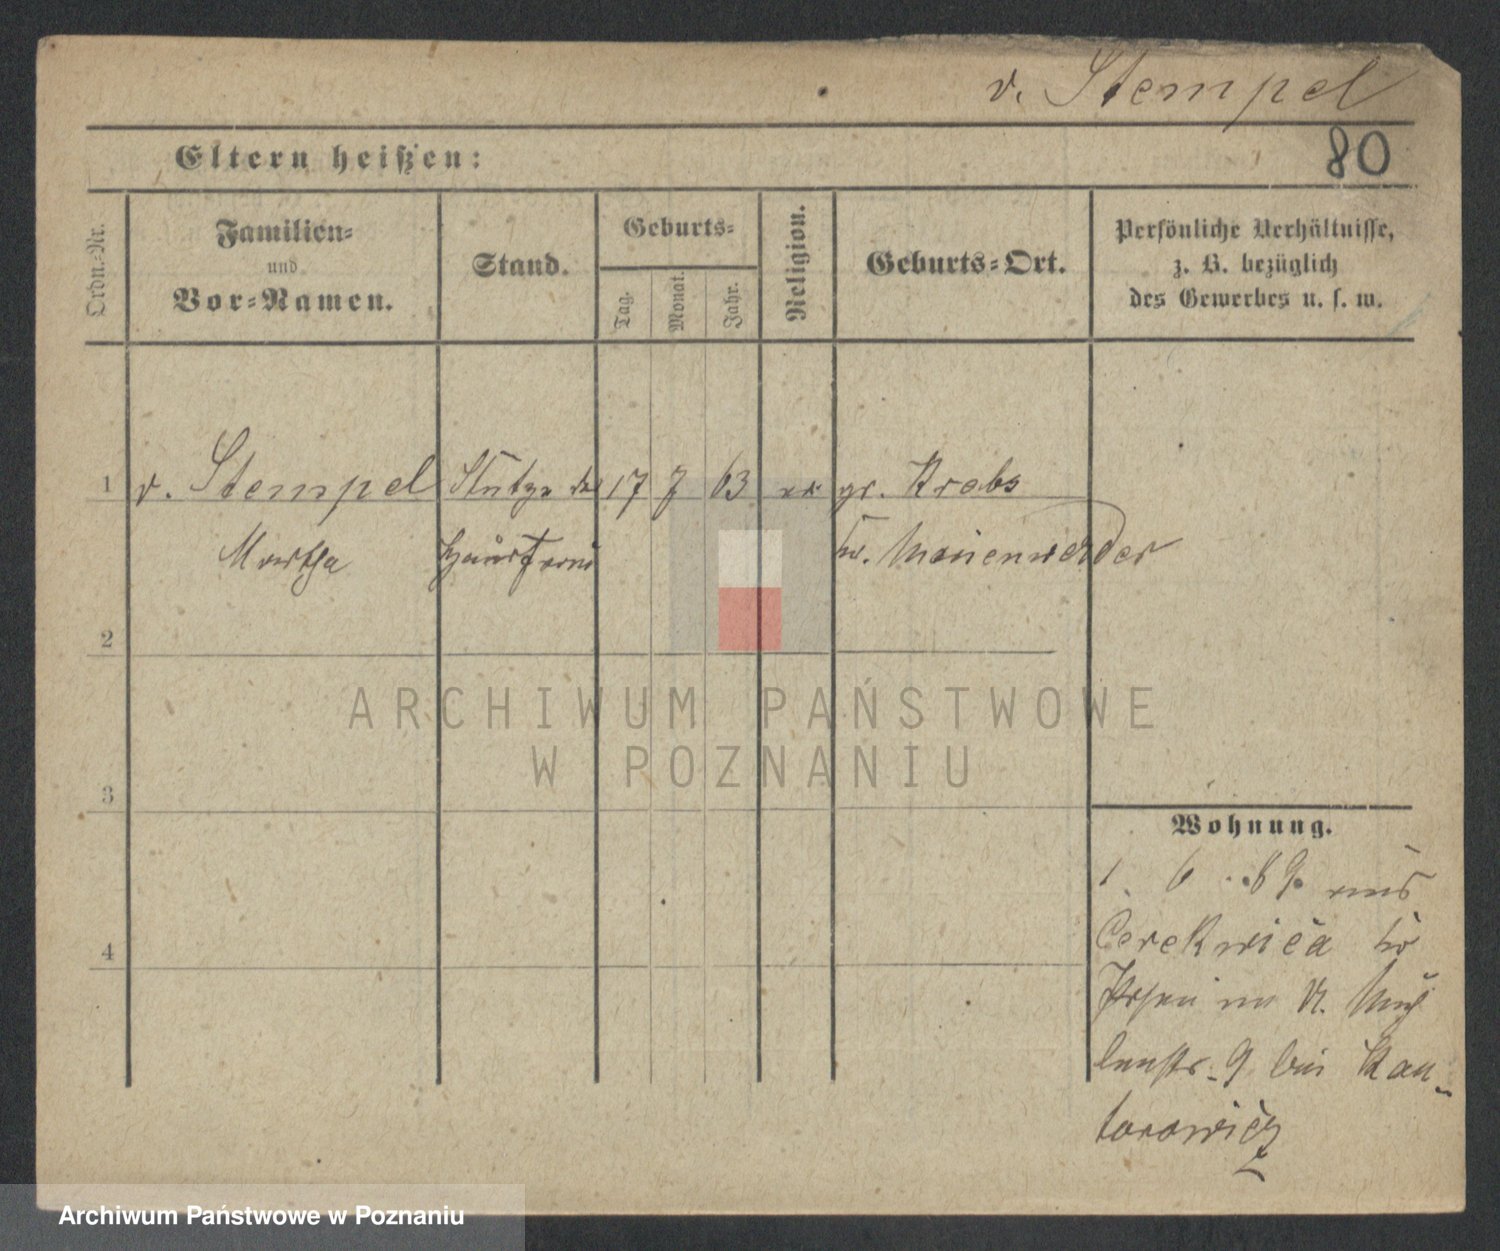 v. Stempel
80
Eltern heißen:
Ordn.-Nr.
Familien-
und
Vor-Namen.
Stand.
Geburts-
Tag.
Monat.
Jahr.
Religion.
Geburts-Ort.
Persönliche Verhältnisse,
z. B. bezüglich
des Gewerbes u. s. w.
1 v. Stempel Stütze der 17 7 63 gr. Krebs
Martha Hausfrau Kr. Marienwerder
2
ARCHIWUM PAŃSTWOWE
W POZNANIU
3
Wohnung.
1. 6. 89. aus
4
Cerekwica Kr
Posen n. Müh
lenstr. 9 bei Kan-
torowicz
Archiwum Państwowe w Poznaniu